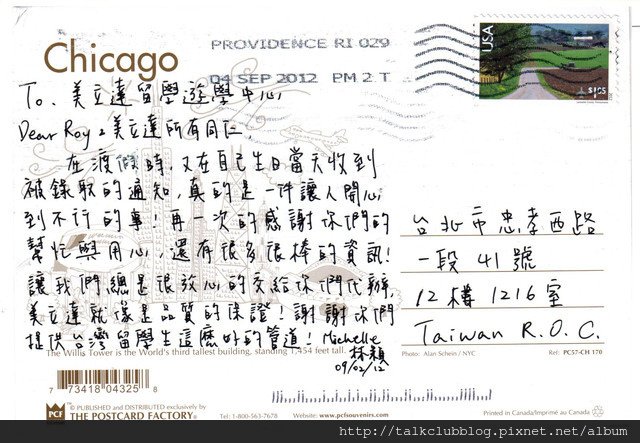 Chicago
PROVIDENCE RI 029
04 SEP 2012 PM 2 T
USA
$1.05
To. 美立達留學遊學中心
Dear Roy & 美立達所有同仁,
在渡假時,又在自己生日當天收到
被錄取的通知,真的是一件讓人開心
到不行的事!再一次的感謝你們的
幫忙與用心,還有很多很棒的資訊!
讓我們總是很放心的交給你們代辦,
美立達就像是品質的保證!謝謝你們
提供台灣留學生這麼好的管道! Michelle
林穎
09/02/12
台北市忠孝西路
一段 41 號
12 樓 1216 室
Taiwan R.O.C.
The Willis Tower is the World's third tallest building, standing 1,454 feet tall.
Photo: Alan Schein / NYC
Ref: PC57-CH 170
7 73418 04325 8
PCF
© PUBLISHED and DISTRIBUTED exclusively by
THE POSTCARD FACTORY
Tel: 1-800-563-7678
Website: www.pcfsouvenirs.com
Printed in Canada/Imprimé au Canada
http://talkclubblog.pixnet.net/album